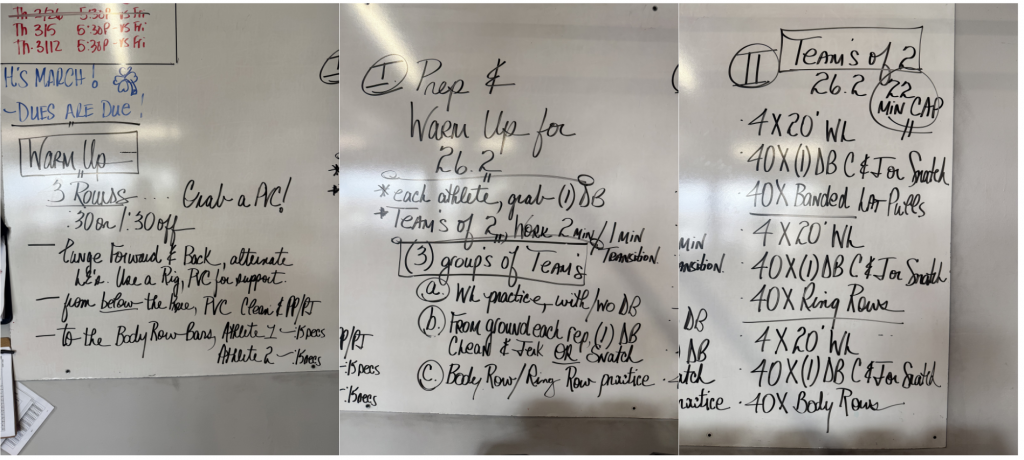 Th 2/26 5:30P - vs Fri
Th 3/5 5:30P - vs Fri
Th. 3/12 5:30P - vs Fri
It's MARCH!
- DUES ARE DUE!
WARM UP
3 Rounds.... Grab a PVC!
:30 on/:30 off
— lunge Forward & Back, alternate
Use a Rig, PVC for support.
— from below the knee, PVC Clean & PP/PJ
— to the Body Row Bars, Athlete 1 - 15 secs
Athlete 2 - 15 secs
I. Prep &
Warm Up for
26.2
* each athlete, grab (1) DB
* TEAM's of 2, WORK 2 min/1 MIN
TRANSITION.
(3) groups of TEAM's
a. WL practice, with/wo DB
b. From ground each rep, (1) DB
Clean & Jerk OR Snatch
c. Body Row/Ring Row practice
PP/PJ
- 15 secs
- 15 secs
II TEAM'S of 2
26.2 22
MIN CAP
· 4 X 20' WL
· 40 X (1) DB C & J or Snatch
· 40 X Banded LAT Pulls
· 4 X 20' WL
· 40 X (1) DB C & J or Snatch
· 40 X Ring Rows
· 4 X 20' WL
· 40 X (1) DB C & J or Snatch
· 40 X Body Rows
MIN
TRANSITION.
DB
DB
practice